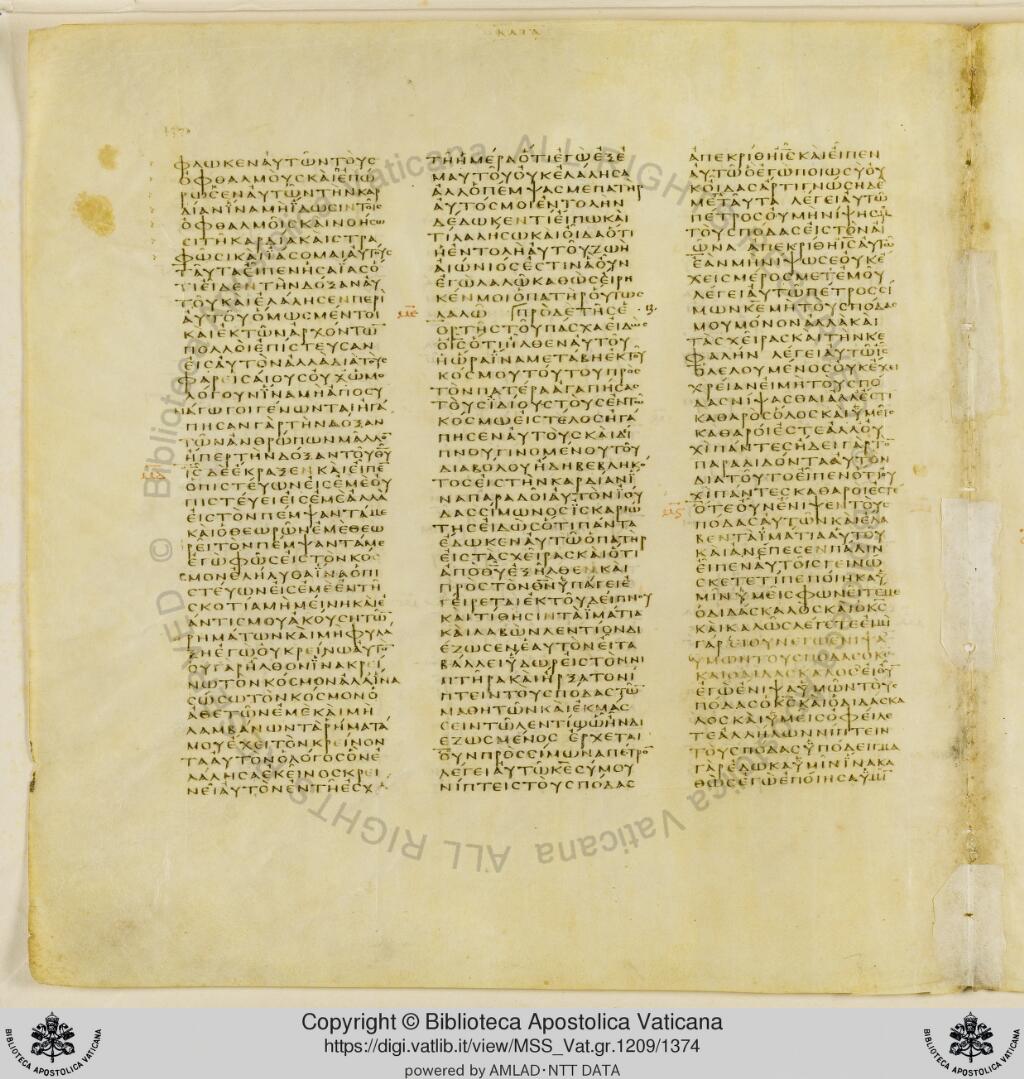 ΚΑΤΑ
ΦΛΩΚΕΝΑΥΤΩΝΤΟΥΣ
ΟΦΘΑΛΜΟΥΣΚΑΙΕΠΩ
ΡΩΣΕΝΑΥΤΩΝΤΗΝΚΑΡ
ΔΙΑΝΙΝΑΜΗΙΔΩΣΙΝΤΟΙΣ
ΟΦΘΑΛΜΟΙΣΚΑΙΝΟΗΣΩ
ΣΙΤΗΚΑΡΔΙΑΚΑΙΣΤΡΑ
ΦΩΣΙΚΑΙΙΑΣΟΜΑΙΑΥΤΟΥΣ
ΤΑΥΤΑΕΙΠΕΝΗΣΑΙΑΣΟ
ΤΙΕΙΔΕΝΤΗΝΔΟΞΑΝΑΥ
ΤΟΥΚΑΙΕΛΑΛΗΣΕΝΠΕΡΙ
ΑΥΤΟΥΟΜΩΣΜΕΝΤΟΙ
ΚΑΙΕΚΤΩΝΑΡΧΟΝΤΩ̅
ΠΟΛΛΟΙΕΠΙΣΤΕΥΣΑΝ
ΕΙΣΑΥΤΟΝΑΛΛΑΔΙΑΤΟΥΣ
ΦΑΡΕΙΣΑΙΟΥΣΟΥΧΩΜΟ
ΛΟΓΟΥΝΙΝΑΜΗΑΠΟΣΥ
ΝΑΓΩΓΟΙΓΕΝΩΝΤΑΙΗΓΑ
ΠΗΣΑΝΓΑΡΤΗΝΔΟΞΑΝ
ΤΩΝΑΝΘΡΩΠΩΝΜΑΛΛΟ̅
ΗΠΕΡΤΗΝΔΟΞΑΝΤΟΥΘΥ̅
ΙΣ̅ΔΕΕΚΡΑΞΕΝΚΑΙΕΙΠΕ̅
ΟΠΙΣΤΕΥΩΝΕΙΣΕΜΕΟΥ
ΠΙΣΤΕΥΕΙΕΙΣΕΜΕΑΛΛΑ
ΕΙΣΤΟΝΠΕΜΨΑΝΤΑΜΕ
ΚΑΙΟΘΕΩΡΩΝΕΜΕΘΕΩ
ΡΕΙΤΟΝΠΕΜΨΑΝΤΑΜΕ
ΕΓΩΦΩΣΕΙΣΤΟΝΚΟΣ
ΜΟΝΕΛΗΛΥΘΑΙΝΑΟΠΙ
ΣΤΕΥΩΝΕΙΣΕΜΕΕΝΤΗ
ΣΚΟΤΙΑΜΗΜΕΙΝΗΚΑΙΕ
ΑΝΤΙΣΜΟΥΑΚΟΥΣΗΤΩ̅
ΡΗΜΑΤΩΝΚΑΙΜΗΦΥΛΑ
ΞΗΕΓΩΟΥΚΡΕΙΝΩΑΥΤΟ̅
ΟΥΓΑΡΗΛΘΟΝΙΝΑΚΡΕΙ
ΝΩΤΟΝΚΟΣΜΟΝΑΛΛΙΝΑ
ΣΩΣΩΤΟΝΚΟΣΜΟΝΟ
ΑΘΕΤΩΝΕΜΕΚΑΙΜΗ
ΛΑΜΒΑΝΩΝΤΑΡΗΜΑΤΑ
ΜΟΥΕΧΕΙΤΟΝΚΡΕΙΝΟΝ
ΤΑΑΥΤΟΝΟΛΟΓΟΣΟΝΕ
ΛΑΛΗΣΑΕΚΕΙΝΟΣΚΡΕΙ
ΝΕΙΑΥΤΟΝΕΝΤΗΕΣΧΑ
ΤΗΗΜΕΡΑΟΤΙΕΓΩΕΞΕ
ΜΑΥΤΟΥΟΥΚΕΛΑΛΗΣΑ
ΑΛΛΟΠΕΜΨΑΣΜΕΠΑΤΗΡ
ΑΥΤΟΣΜΟΙΕΝΤΟΛΗΝ
ΔΕΔΩΚΕΝΤΙΕΙΠΩΚΑΙ
ΤΙΛΑΛΗΣΩΚΑΙΟΙΔΑΟΤΙ
ΗΕΝΤΟΛΗΑΥΤΟΥΖΩΗ
ΑΙΩΝΙΟΣΕΣΤΙΝΑΟΥΝ
ΕΓΩΛΑΛΩΚΑΘΩΣΕΙΡΗ
ΚΕΝΜΟΙΟΠΑΤΗΡΟΥΤΩΣ
ΛΑΛΩ ΠΡΟΔΕΤΗΣΕ
ΟΡΤΗΣΤΟΥΠΑΣΧΑΕΙΔΩΣ
ΟΙΣ̅ΟΤΙΗΛΘΕΝΑΥΤΟΥ
ΗΩΡΑΙΝΑΜΕΤΑΒΗΕΚΤΟΥ
ΚΟΣΜΟΥΤΟΥΤΟΥΠΡΟΣ
ΤΟΝΠΑΤΕΡΑΑΓΑΠΗΣΑΣ
ΤΟΥΣΙΔΙΟΥΣΤΟΥΣΕΝΤΩ
ΚΟΣΜΩΕΙΣΤΕΛΟΣΗΓΑ
ΠΗΣΕΝΑΥΤΟΥΣΚΑΙΔΙ
ΠΝΟΥΓΙΝΟΜΕΝΟΥΤΟΥ
ΔΙΑΒΟΛΟΥΗΔΗΒΕΒΛΗΚΟ
ΤΟΣΕΙΣΤΗΝΚΑΡΔΙΑΝΙ
ΝΑΠΑΡΑΔΟΙΑΥΤΟΝΙΟΥ
ΔΑΣΣΙΜΩΝΟΣΙΣΚΑΡΙΩ
ΤΗΣΕΙΔΩΣΟΤΙΠΑΝΤΑ
ΕΔΩΚΕΝΑΥΤΩΟΠΑΤΗΡ
ΕΙΣΤΑΣΧΕΙΡΑΣΚΑΙΟΤΙ
ΑΠΟΘΥ̅ΕΞΗΛΘΕΝΚΑΙ
ΠΡΟΣΤΟΝΘΝ̅ΥΠΑΓΕΙΕ
ΓΕΙΡΕΤΑΙΕΚΤΟΥΔΕΙΠΝΟΥ
ΚΑΙΤΙΘΗΣΙΝΤΑΙΜΑΤΙΑ
ΚΑΙΛΑΒΩΝΛΕΝΤΙΟΝΔΙ
ΕΖΩΣΕΝΕΑΥΤΟΝΕΙΤΑ
ΒΑΛΛΕΙΥΔΩΡΕΙΣΤΟΝΝΙ
ΠΤΗΡΑΚΑΙΗΡΞΑΤΟΝΙ
ΠΤΕΙΝΤΟΥΣΠΟΔΑΣΤΩ̅
ΜΑΘΗΤΩΝΚΑΙΕΚΜΑΣ
ΣΕΙΝΤΩΛΕΝΤΙΩΩΗΝΔΙ
ΕΖΩΣΜΕΝΟΣ ΕΡΧΕΤΑΙ
ΟΥΝΠΡΟΣΣΙΜΩΝΑΠΕΤΡΟ̅
ΛΕΓΕΙΑΥΤΩΚΕ̅ΣΥΜΟΥ
ΝΙΠΤΕΙΣΤΟΥΣΠΟΔΑΣ
ΑΠΕΚΡΙΘΗΙΣ̅ΚΑΙΕΙΠΕΝ
ΑΥΤΩΟΕΓΩΠΟΙΩΣΥΟΥ
ΚΟΙΔΑΣΑΡΤΙΓΝΩΣΗΔΕ
ΜΕΤΑΥΤΑ ΛΕΓΕΙΑΥΤΩ
ΠΕΤΡΟΣΟΥΜΗΝΙΨΗΣΜΟΥ
ΤΟΥΣΠΟΔΑΣΕΙΣΤΟΝΑΙ
ΩΝΑ ΑΠΕΚΡΙΘΗΙΣ̅ΑΥΤΩ
ΕΑΝΜΗΝΙΨΩΣΕΟΥΚΕ
ΧΕΙΣΜΕΡΟΣΜΕΤΕΜΟΥ
ΛΕΓΕΙΑΥΤΩΠΕΤΡΟΣΣΙ
ΜΩΝΚΕ̅ΜΗΤΟΥΣΠΟΔΑΣ
ΜΟΥΜΟΝΟΝΑΛΛΑΚΑΙ
ΤΑΣΧΕΙΡΑΣΚΑΙΤΗΝΚΕ
ΦΑΛΗΝ ΛΕΓΕΙΑΥΤΩΙΣ̅
ΟΛΕΛΟΥΜΕΝΟΣΟΥΚΕΧΕΙ
ΧΡΕΙΑΝΕΙΜΗΤΟΥΣΠΟ
ΔΑΣΝΙΨΑΣΘΑΙΑΛΛΕΣΤΙ
ΚΑΘΑΡΟΣΟΛΟΣΚΑΙΥΜΕΙΣ
ΚΑΘΑΡΟΙΕΣΤΕΑΛΛΟΥ
ΧΙΠΑΝΤΕΣΗΔΕΙΓΑΡΤΟ̅
ΠΑΡΑΔΙΔΟΝΤΑΑΥΤΟΝ
ΔΙΑΤΟΥΤΟΕΙΠΕΝΟΤΙΟΥ
ΧΙΠΑΝΤΕΣΚΑΘΑΡΟΙΕΣΤΕ
ΟΤΕΟΥΝΕΝΙΨΕΝΤΟΥΣ
ΠΟΔΑΣΑΥΤΩΝΚΑΙΕΛΑ
ΒΕΝΤΑΙΜΑΤΙΑΑΥΤΟΥ
ΚΑΙΑΝΕΠΕΣΕΝΠΑΛΙΝ
ΕΙΠΕΝΑΥΤΟΙΣΓΕΙΝΩ
ΣΚΕΤΕΤΙΠΕΠΟΙΗΚΑΥ
ΜΙΝΥΜΕΙΣΦΩΝΕΙΤΕΜΕ
ΟΔΙΔΑΣΚΑΛΟΣΚΑΙΟΚΣ̅
ΚΑΙΚΑΛΩΣΛΕΓΕΤΕΕΙΜΙ
ΓΑΡΕΙΟΥΝΕΓΩΕΝΙΨΑ
ΥΜΩΝΤΟΥΣΠΟΔΑΣΟΚΣ̅
ΚΑΙΟΔΙΔΑΣΚΑΛΟΣΕΙΟΥ̅
ΕΓΩΕΝΙΨΑΥΜΩΝΤΟΥΣ
ΠΟΔΑΣΟΚΣ̅ΚΑΙΟΔΙΔΑΣΚΑ
ΛΟΣΚΑΙΥΜΕΙΣΟΦΕΙΛΕ
ΤΕΑΛΛΗΛΩΝΝΙΠΤΕΙΝ
ΤΟΥΣΠΟΔΑΣΥΠΟΔΕΙΓΜΑ
ΓΑΡΕΔΩΚΑΥΜΙΝΙΝΑΚΑ
ΘΩΣΕΓΩΕΠΟΙΗΣΑΥΜΙ̅
Copyright © Biblioteca Apostolica Vaticana
https://digi.vatlib.it/view/MSS_Vat.gr.1209/1374
powered by AMLAD·NTT DATA